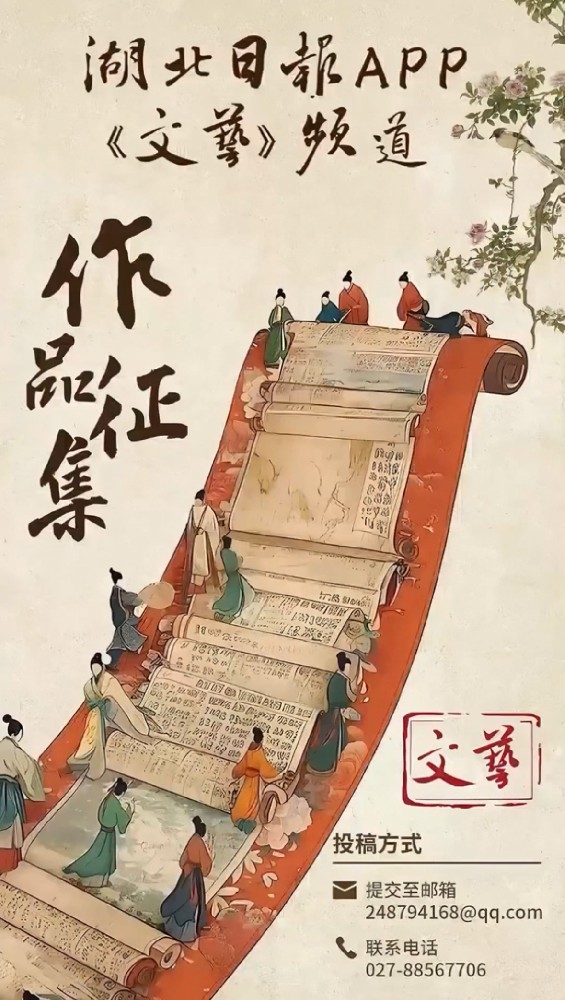 湖北日報APP
《文藝》頻道
作品征集
文藝
投稿方式
提交至邮箱
248794168@qq.com
联系电话
027-88567706